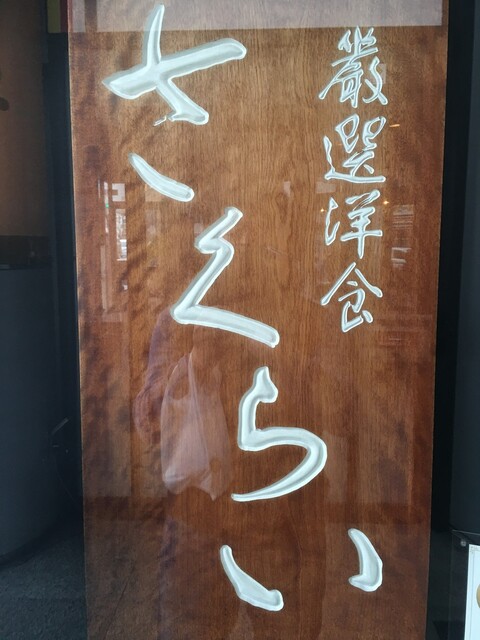 厳選洋食
さくらい